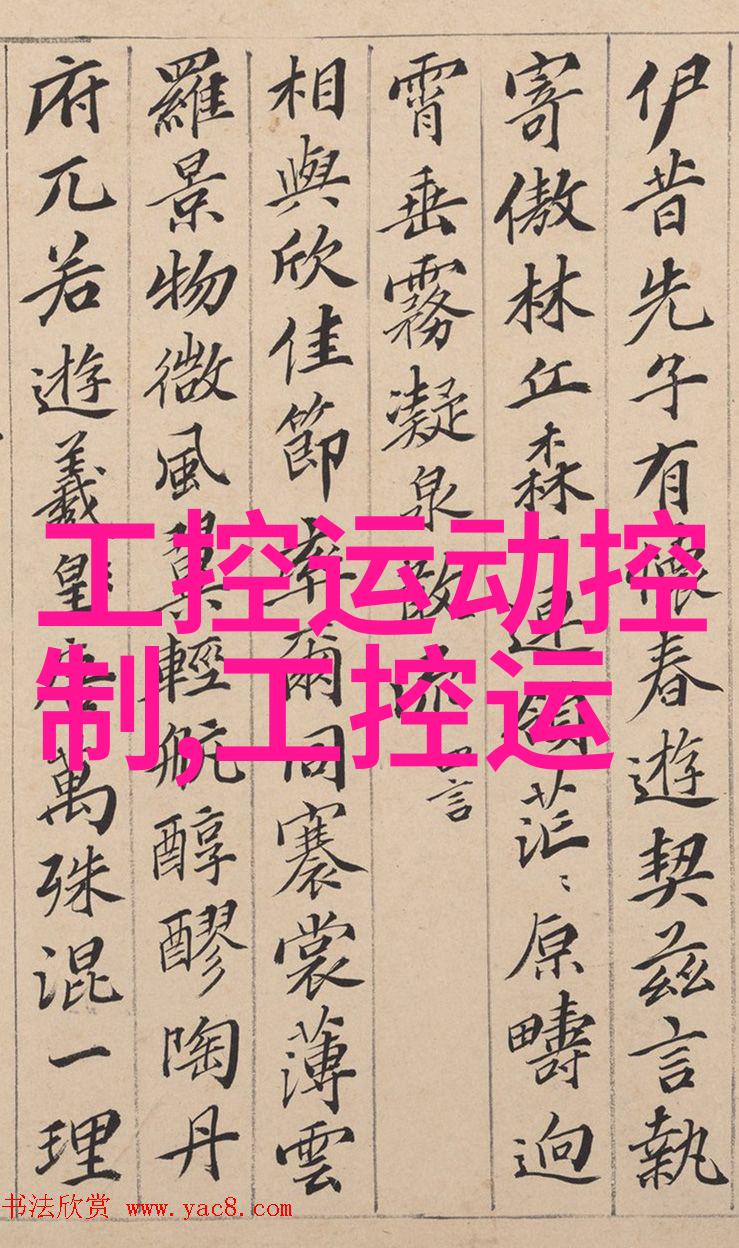 伊昔先子有懷春遊契茲言執
寄傲林丘森〻連領茫〻原疇逈
霄垂霧凝泉散流 四言
相與欣佳節率爾同褰裳薄雲
羅景物微風翼輕航醇醪陶丹
府兀若遊羲皇唐萬殊混一理
工控运动控
制,工控运
书法欣赏 www.yac8.com